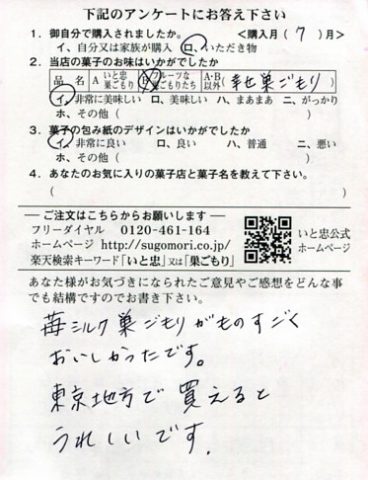 下記のアンケートにお答え下さい
1．御自分で購入されましたか。 <購入月( 7 )月>
イ、自分又は家族が購入 ロ、いただき物
2．当店の菓子のお味はいかがでしたか
品 名 A いと忠巣ごもり B フルーツな巣ごもりたち A・B以外( 幸せ巣ごもり )
イ、非常に美味しい ロ、美味しい ハ、まあまあ ニ、がっかり
ホ、その他（ ）
3．菓子の包み紙のデザインはいかがでしたか
イ、非常に良い ロ、良い ハ、普通 ニ、悪い
ホ、その他（ ）
4．あなたのお気に入りの菓子店と菓子名を教えて下さい。
（ ）
― ご注文はこちらからお願いします ―
フリーダイヤル 0120-461-164
ホームページ http://sugomori.co.jp/
楽天検索キーワード「いと忠」又は「巣ごもり」
いと忠公式
ホームページ
あなた様がお気づきになられたご意見やご感想をどんな事
でも結構ですのでお書き下さい。
苺ミルク巣ごもりがものすごく
おいしかったです。
東京地方で買えると
うれしいです.